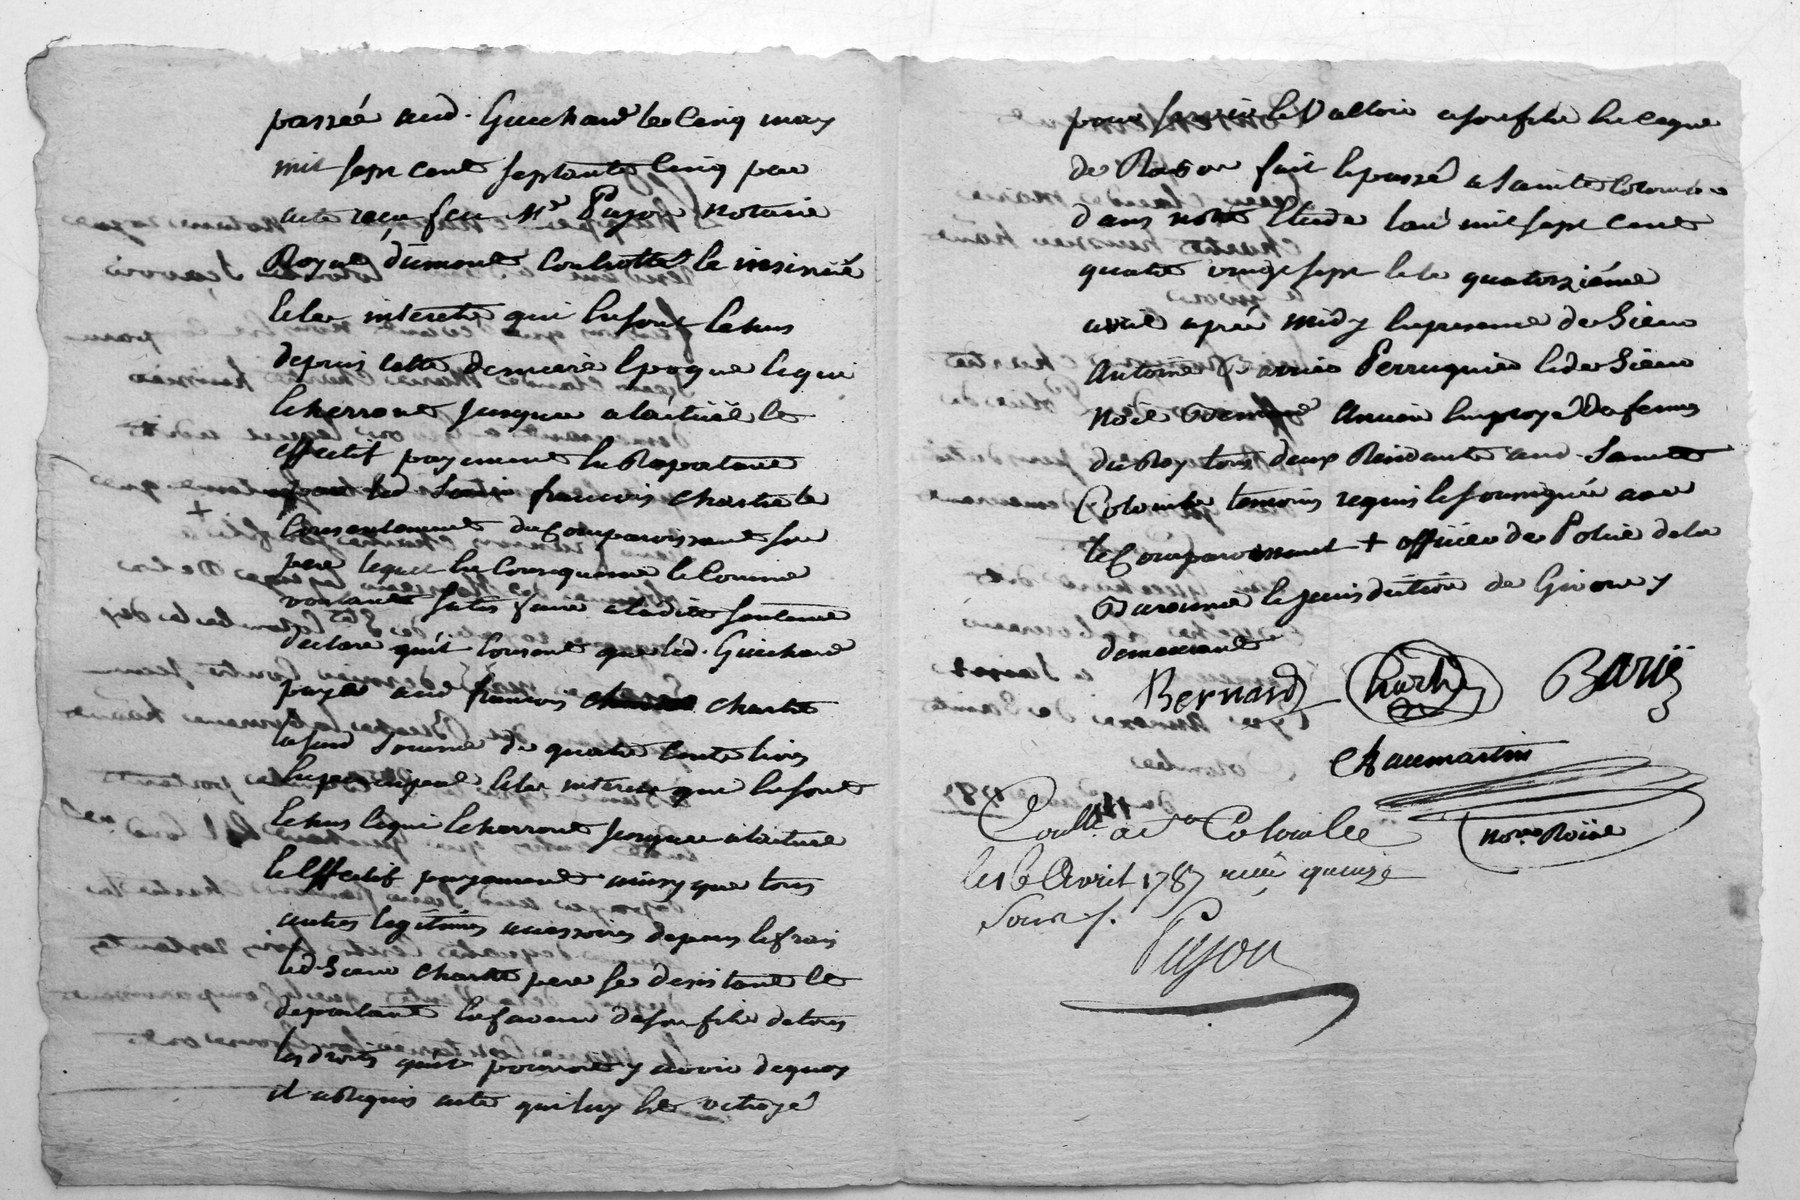 passée aud. Guichard le cinq may
mil sept cent septante cinq par
acte reçu feu Mr Pujon notaire
Royal dument controllé et insinué
et les interets qui en sont echus
depuis cette derniere epoque et qui
echerront jusques a l'actuel et
effectif payement en Rapportant
led françois Chartié le
consentement du comparoissant son
pere lequel en consequence et comme
voulant satisfaire a ladite sentence
declare qu'il consent que led. Guichard
paye aud françois Chartié
lasusd somme de quatre cents livres
en principal et les interets qui en sont
echus et qui echerront jusques a l'actuel
et effectif payement ainsy que tous
autres legitimes accessoires depens et frais
led. Sieur Chartié pere se desistant et
departant en faveur de son fils de tous
les droits qu'il pourroit y avoir de quoy
il a Requis acte qui luy a été octroyé
pour servir et valloir a son fils en ce que
de Raison fait et passé a Sainte Colombe
dans notre Etude l'an mil sept cent
quatre vingt sept et le quatorzième
avril après midy en presence de Sieur
Antoine Barrié Perruquier et de Sieur
Noël Bernard ancien Employé des fermes
du Roy tous deux Residants aud. Sainte
Colombe temoins requis et soussignés avec
le comparoissant + officier de Police de la
Baronnie et jurisdiction de Givors y
demeurant
Bernard Chartié Barié
Chaumartin
nore. Roïal
Contllé a Ste Colombe
le 16 Avril 1787 reçu quinze
sous /.
Pujon